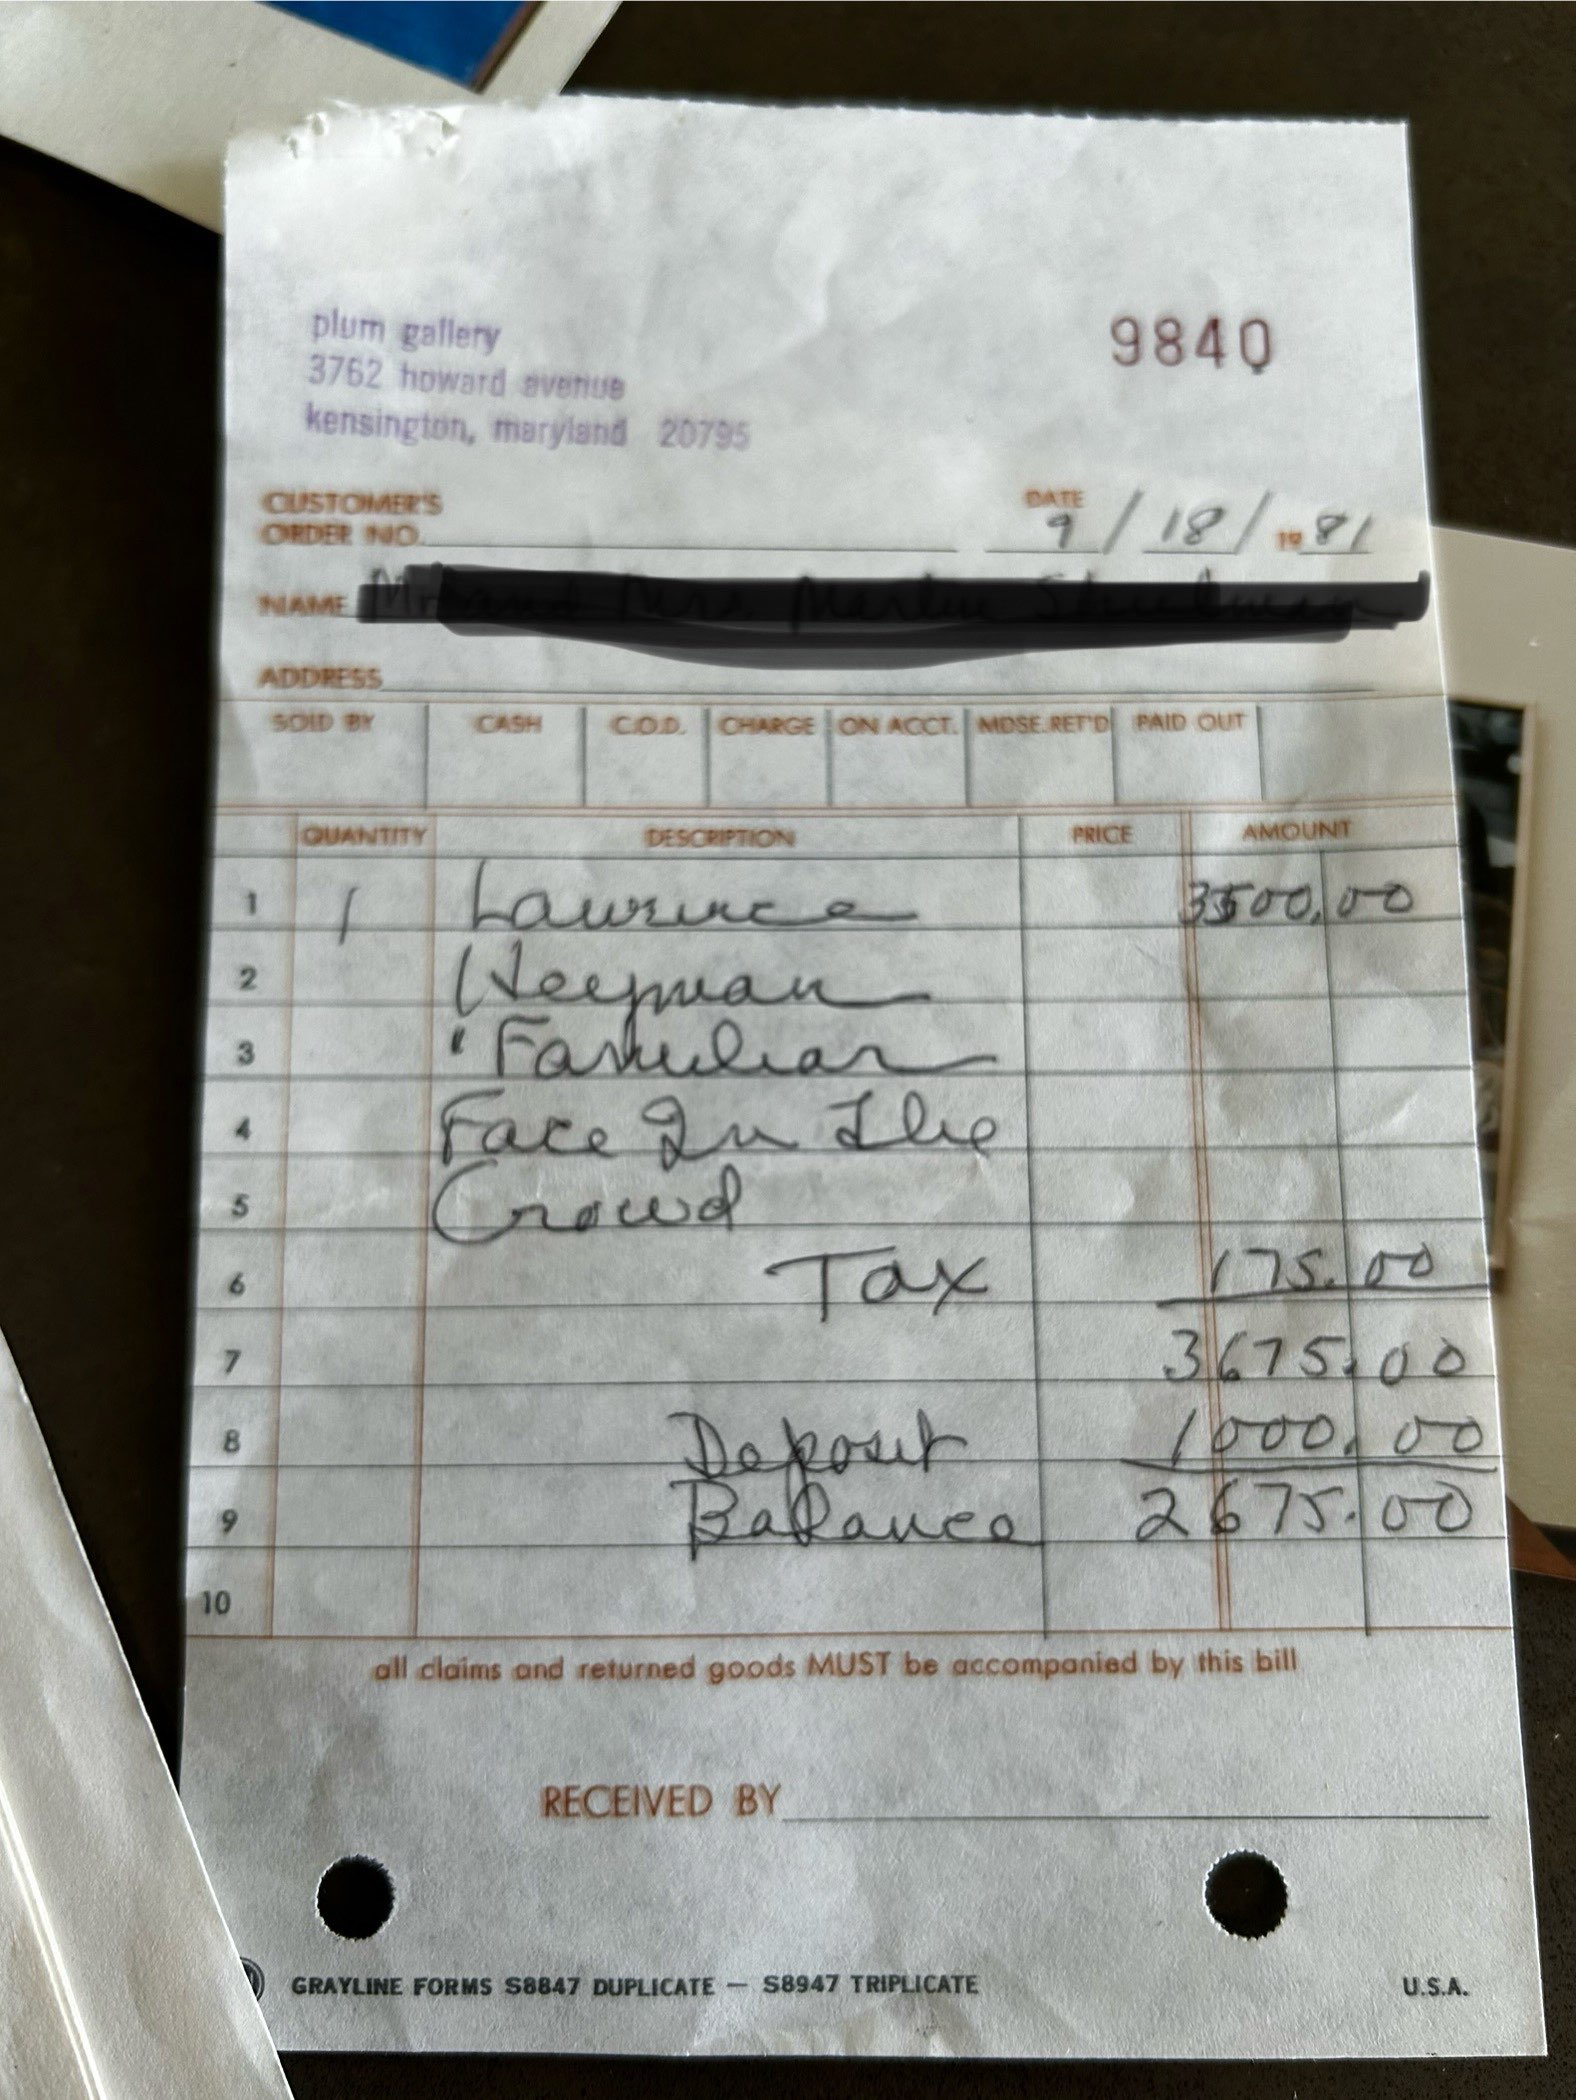 plum gallery
3762 howard avenue
kensington, maryland 20795
9840
CUSTOMER'S
ORDER NO.
DATE
9/18/1981
NAME
ADDRESS
SOLD BY CASH C.O.D. CHARGE ON ACCT. MDSE.RET'D PAID OUT
QUANTITY DESCRIPTION PRICE AMOUNT
1 1 Lawrence 3500.00
2 Heyman
3 "Familiar
4 Face In The
5 Crowd
6 Tax 175.00
7 3675.00
8 Deposit 1000.00
9 Balance 2675.00
10
all claims and returned goods MUST be accompanied by this bill
RECEIVED BY
GRAYLINE FORMS S8847 DUPLICATE — S8947 TRIPLICATE U.S.A.